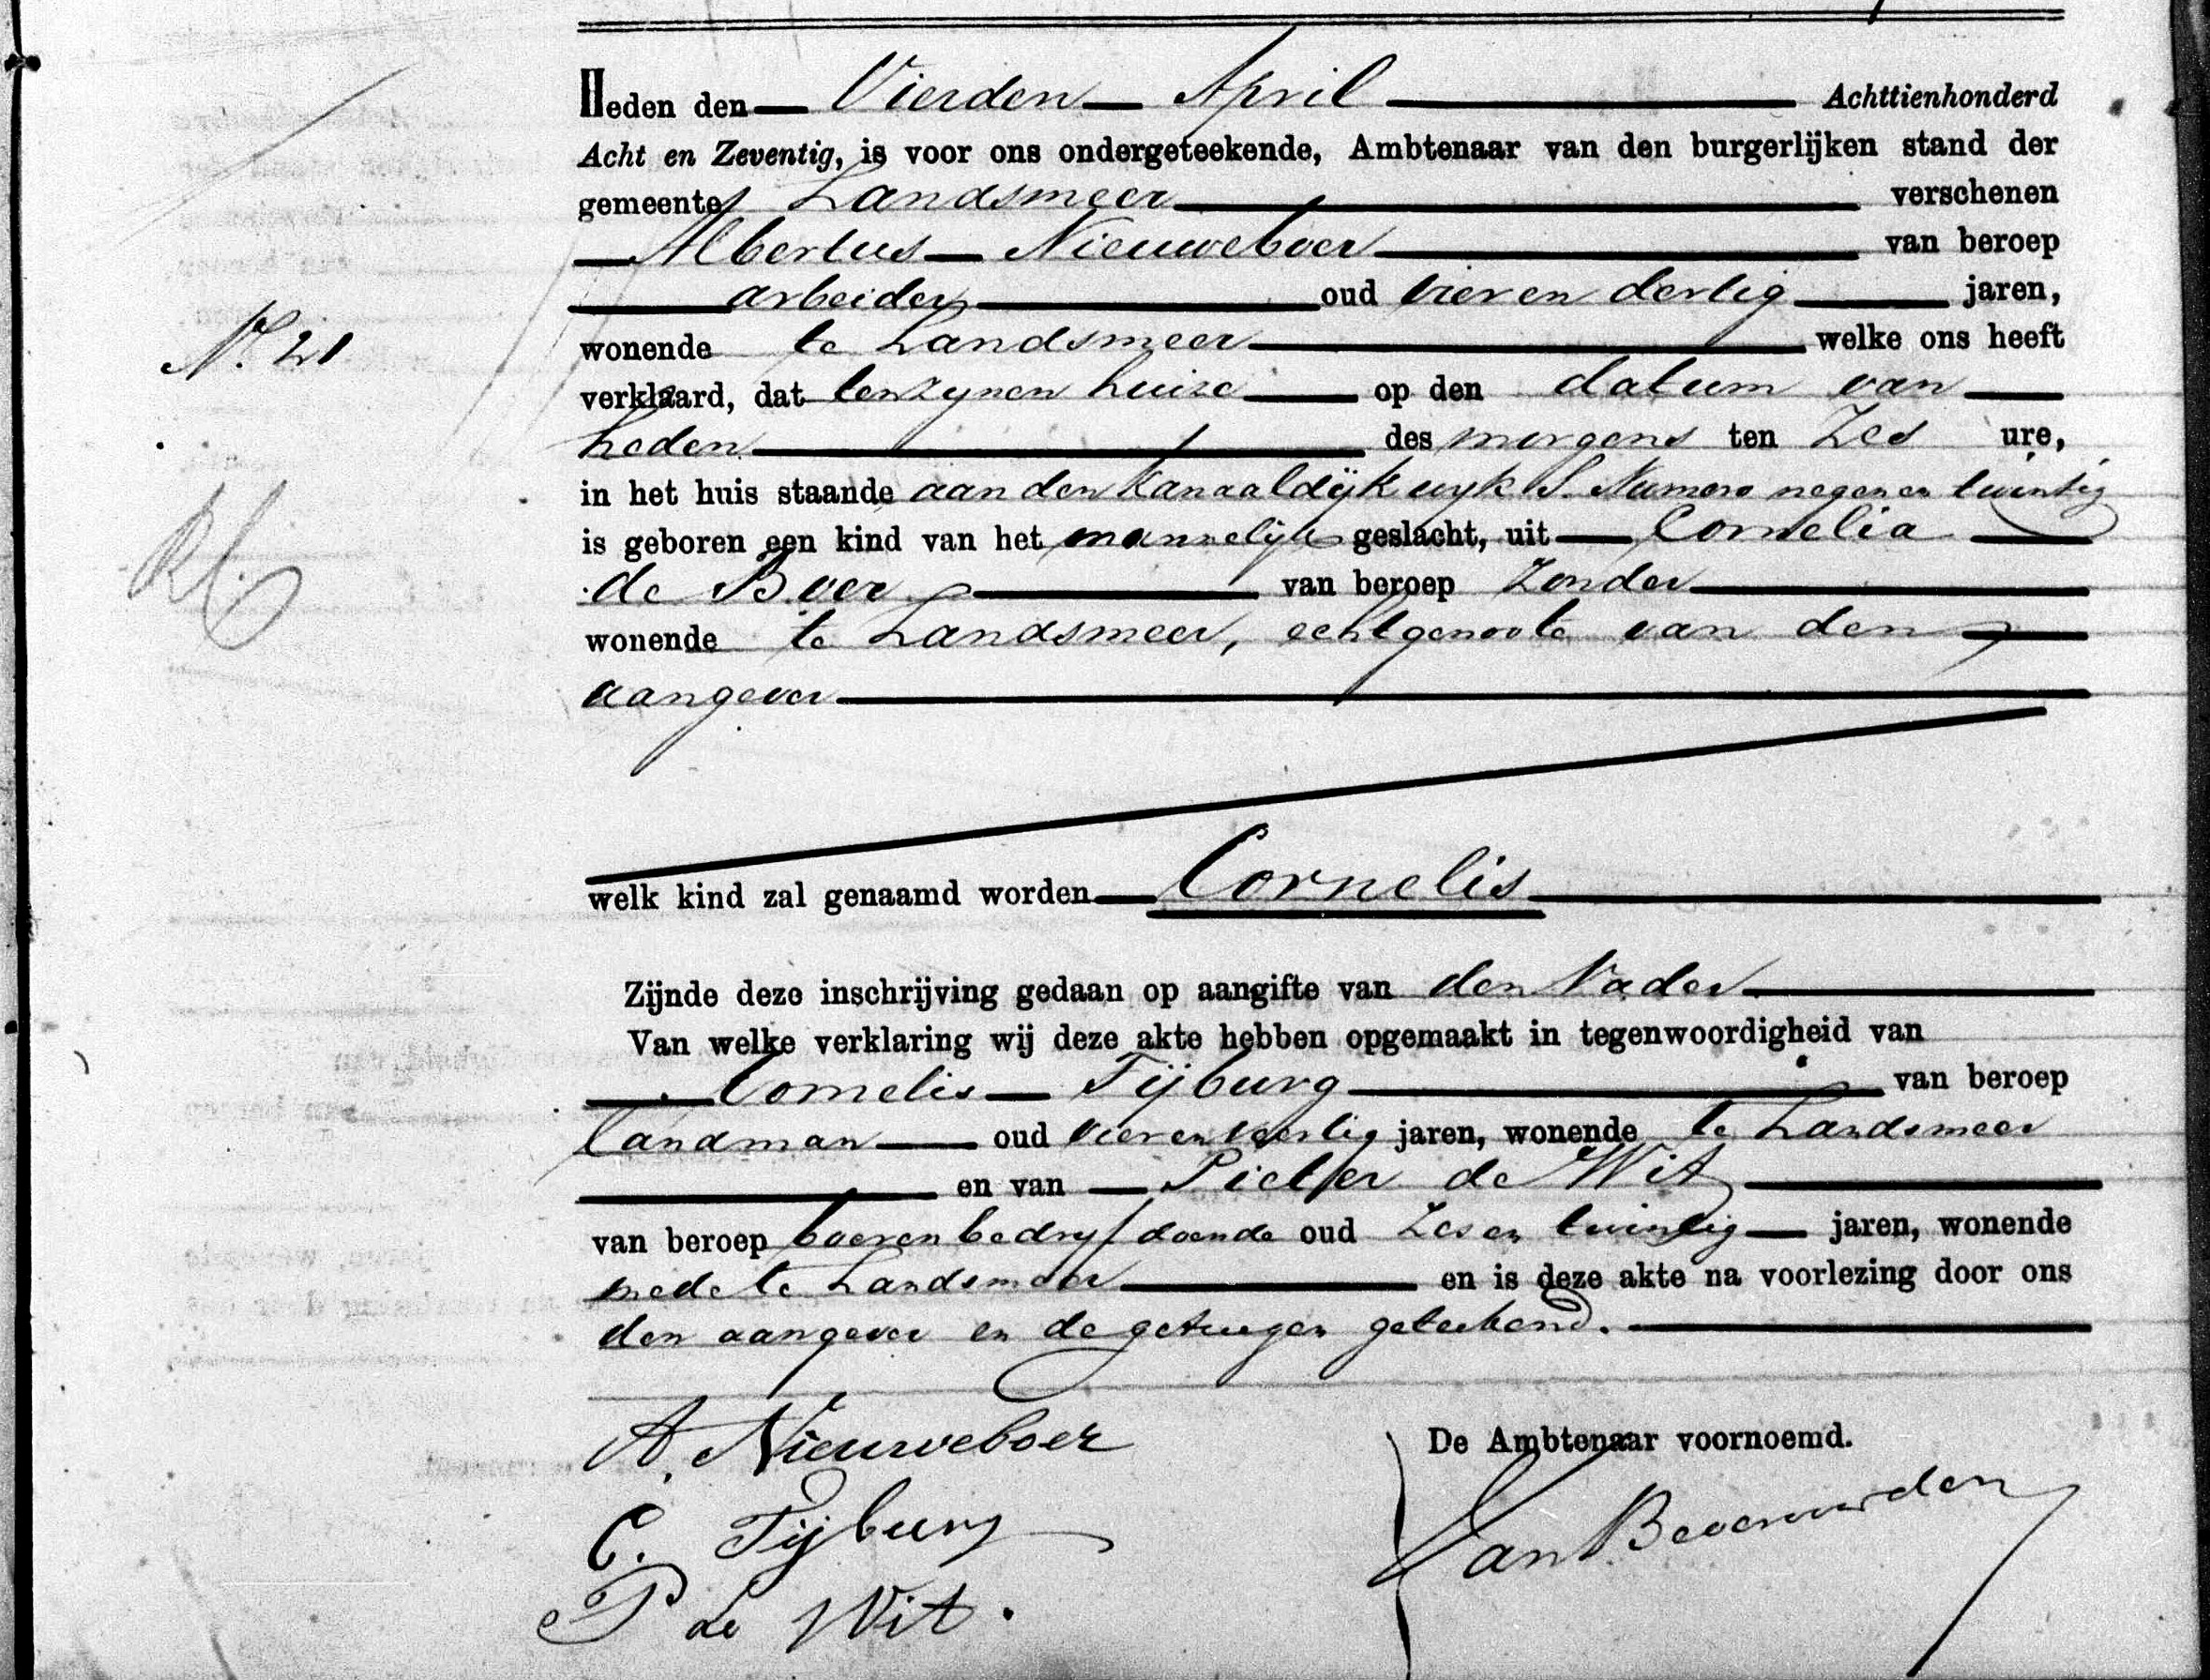 Heden den Vierden April Achttienhonderd
Acht en Zeventig, is voor ons ondergeteekende, Ambtenaar van den burgerlijken stand der
gemeente Landsmeer verschenen
Albertus Nieuweboer van beroep
arbeider oud vier en dertig jaren,
No. 21
wonende te Landsmeer welke ons heeft
verklaard, dat ten zynen huize op den datum van
heden des morgens ten Zes ure,
in het huis staande aan den Kanaaldijk wyk S. Numero negen en twintig
is geboren een kind van het mannelijk geslacht, uit Cornelia
de Boer van beroep Zonder
wonende te Landsmeer, echtgenoote van den
aangever
welk kind zal genaamd worden Cornelis
Zijnde deze inschrijving gedaan op aangifte van den Vader
Van welke verklaring wij deze akte hebben opgemaakt in tegenwoordigheid van
Cornelis Tijburg van beroep
Landman oud vier en veertig jaren, wonende te Landsmeer
en van Pieter de Wit
van beroep boerenbedryf doende oud Zes en twintig jaren, wonende
mede te Landsmeer en is deze akte na voorlezing door ons
den aangever en de getuigen geteekend.
A. Nieuweboer De Ambtenaar voornoemd.
C. Tijburg Van Beverwarden
P de Wit.